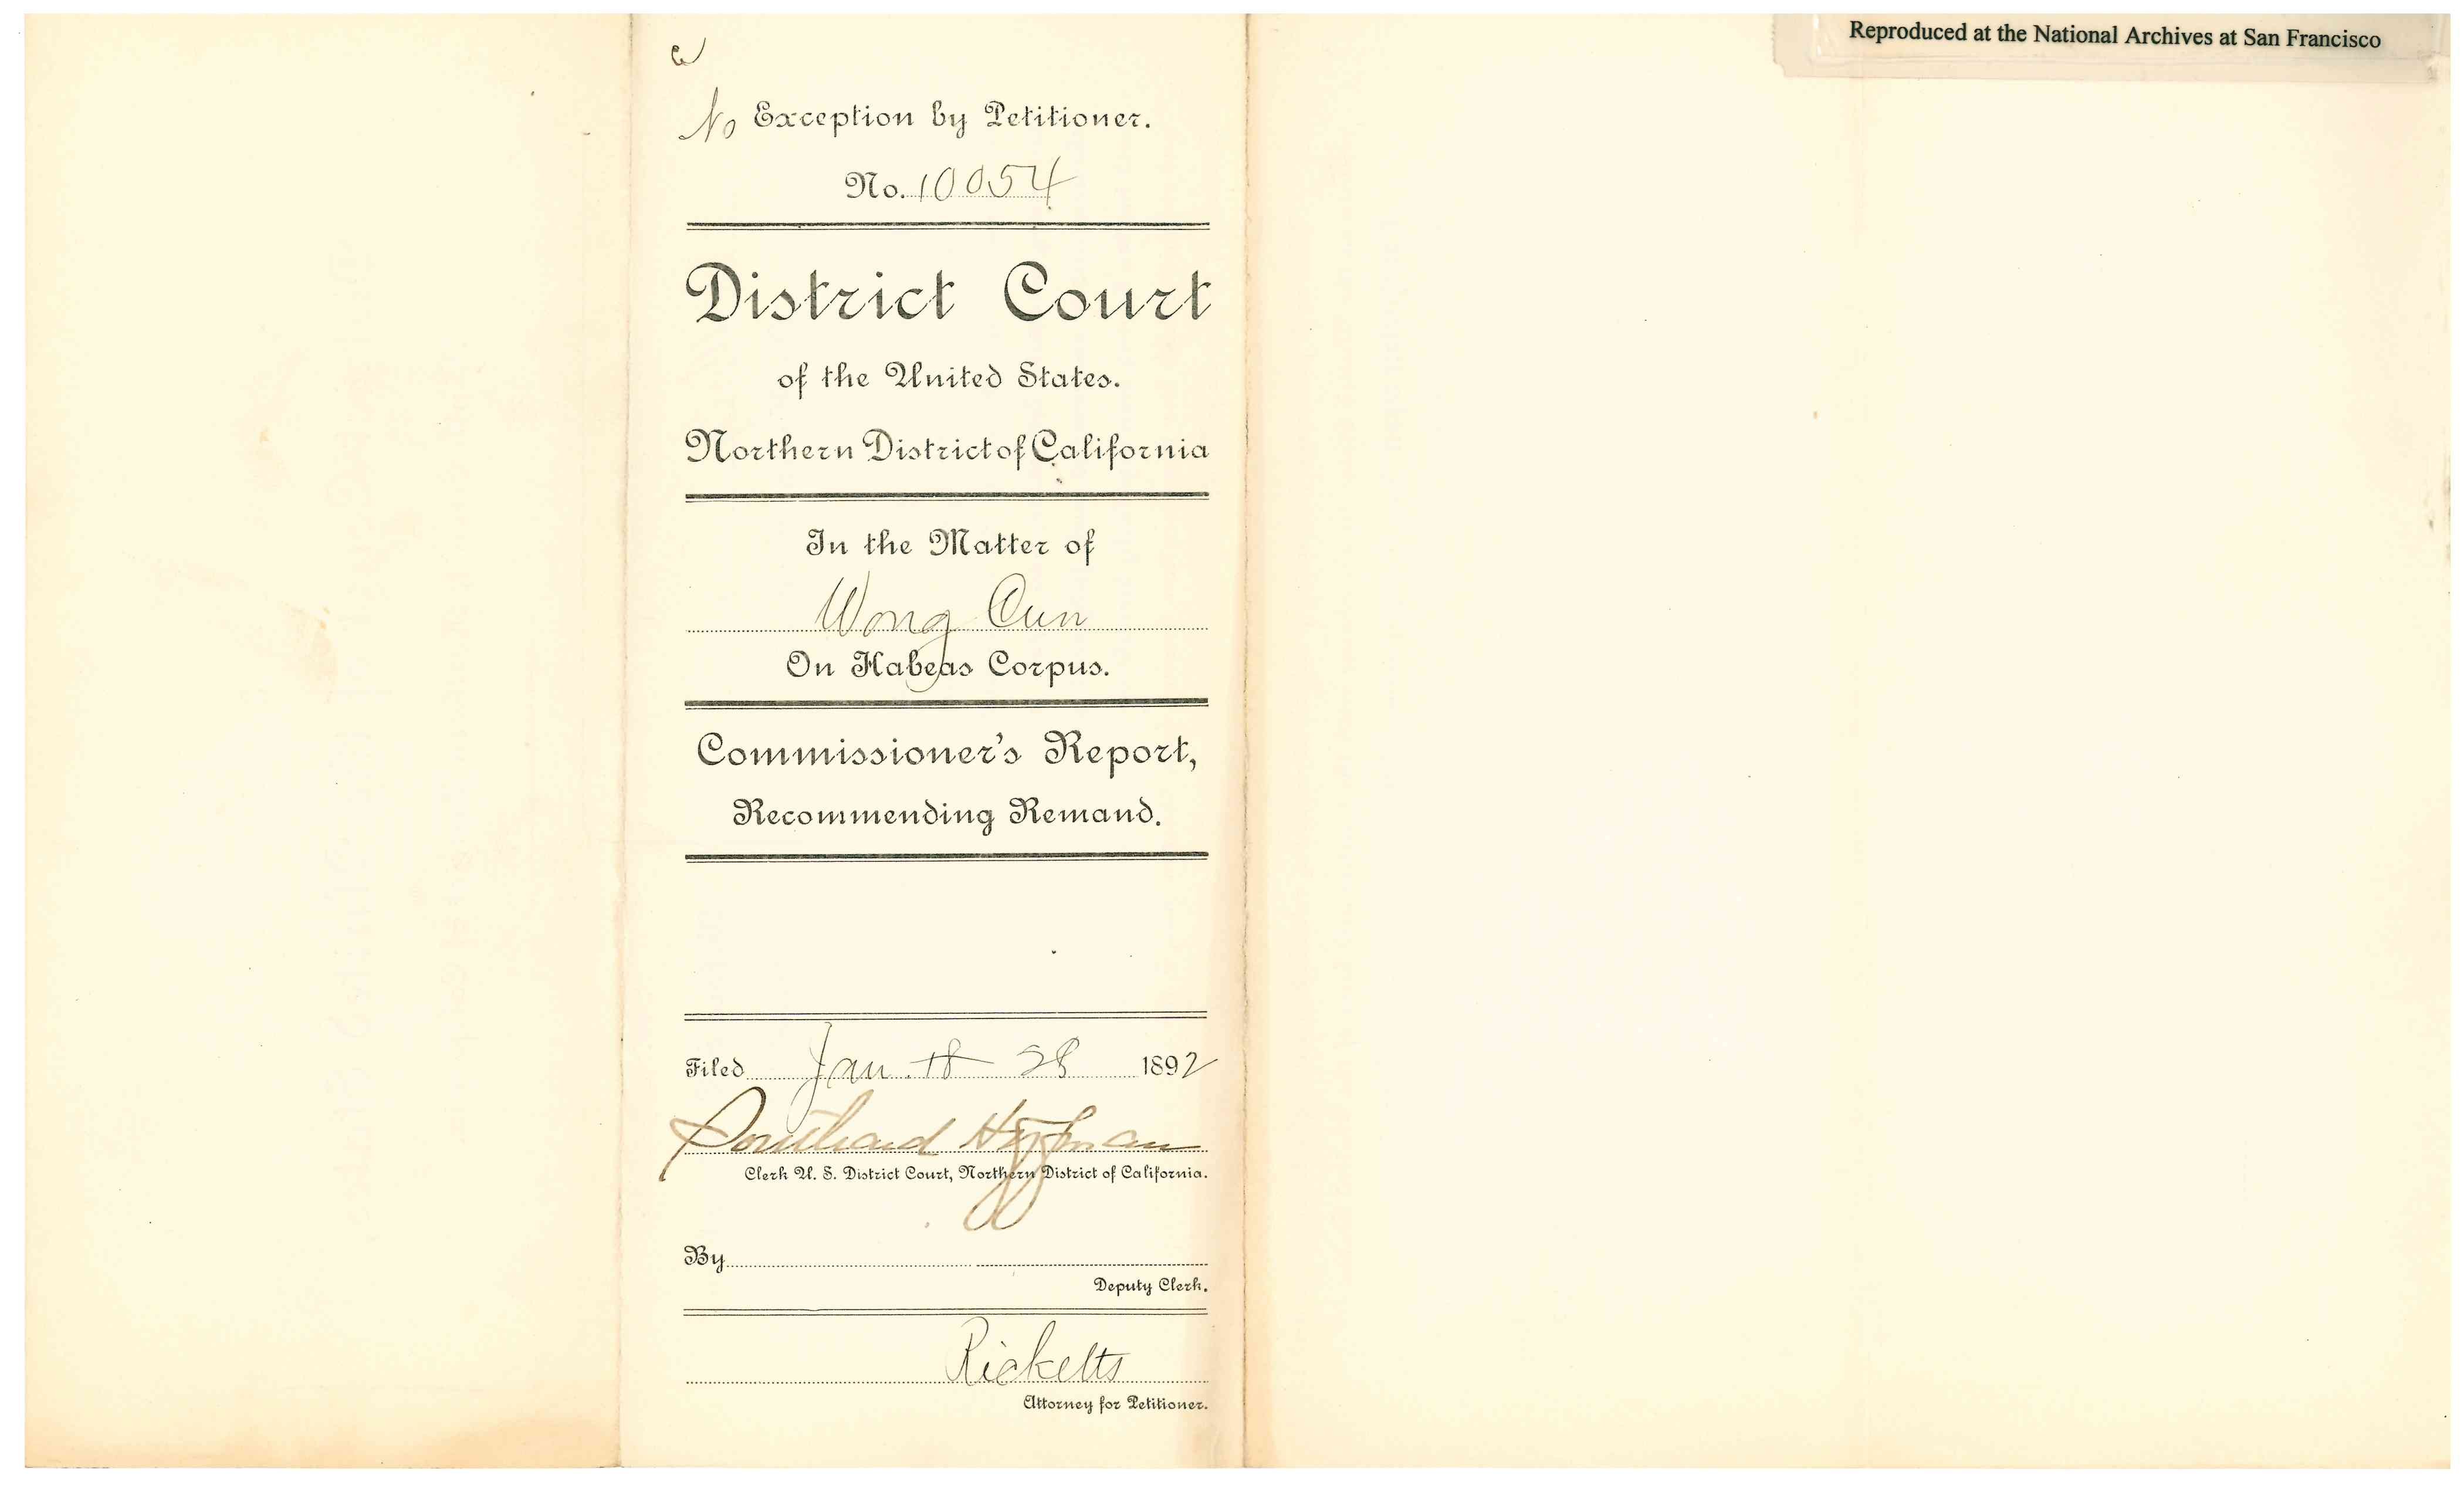 Reproduced at the National Archives at San Francisco
No Exception by Petitioner.
No. 10054
District Court
of the United States.
Northern District of California
In the Matter of
Wong Oun
On Habeas Corpus.
Commissioner's Report,
Recommending Remand.
Filed Jan. 18 28 1892
Southard Hoffman
Clerk U. S. District Court, Northern District of California.
By
Deputy Clerk.
Ricketts
Attorney for Petitioner.